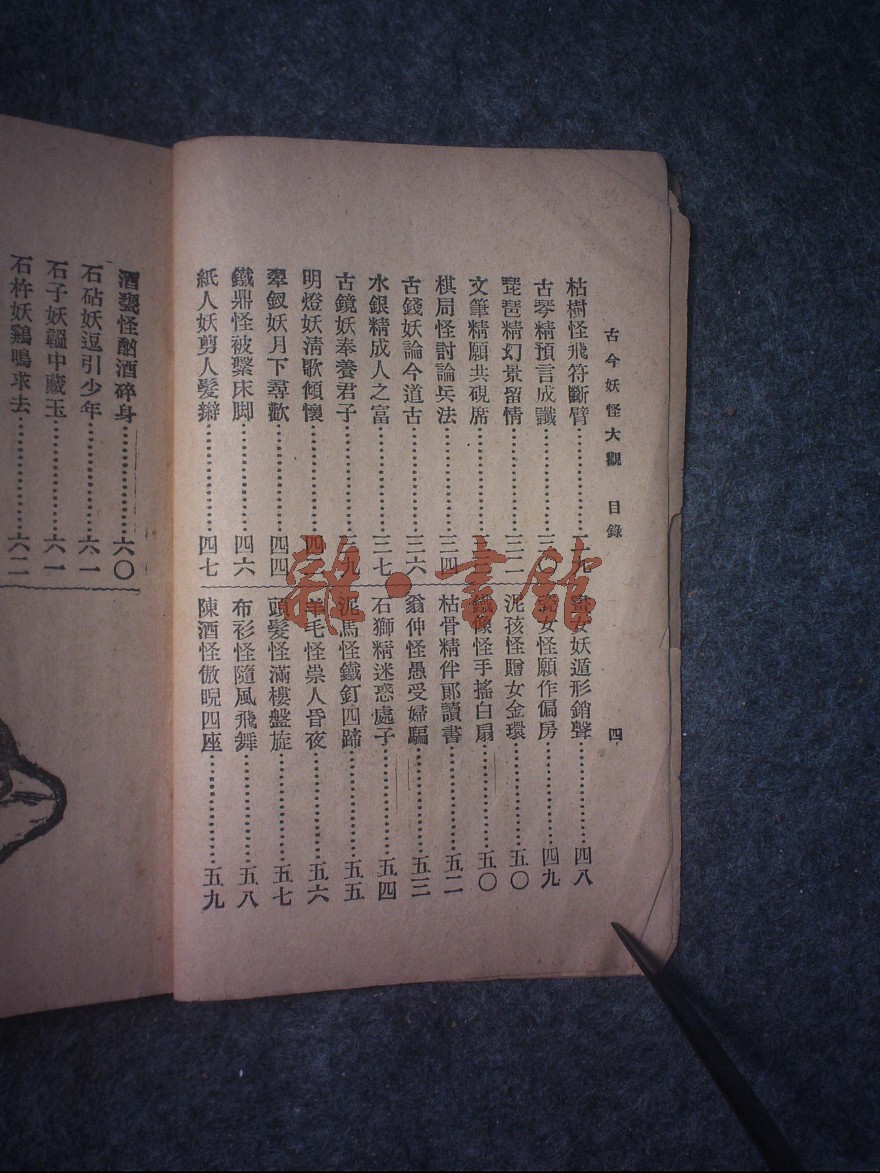 古今妖怪大觀 目錄 四
枯樹怪飛符斷臂……二九
古琴精預言成讖……三〇
琵琶精幻景留情……三二
文筆精願共硯席……三
棋局怪討論兵法……三四
古錢妖論今道古……三六
水銀精成人之富……三七
古鏡妖奉養君子……三九
明燈妖清歌傾懷……四
翠釵妖月下尋歡……四四
鐵鼎怪被繫床脚……四六
紙人妖剪人髮辮……四七
畫女妖遁形銷聲……四八
女怪願作偏房……四九
泥孩怪贈女金環……五〇
鐵像怪手搖白扇……五〇
枯骨精伴郎讀書……五二
翁仲怪愚受婦騙……五三
石獅精迷惑處子……五四
泥馬怪鐵釘四蹄……五五
羊毛怪祟人昏夜……五六
頭髮怪滿樓盤旋……五七
布衫怪隨風飛舞……五八
陳酒怪傲睨四座……五九
酒甕怪酌酒碎身……六〇
石砧妖逗引少年……六一
石子妖韞中藏玉……六一
石杵妖鷄鳴求去……六二
雜·書館